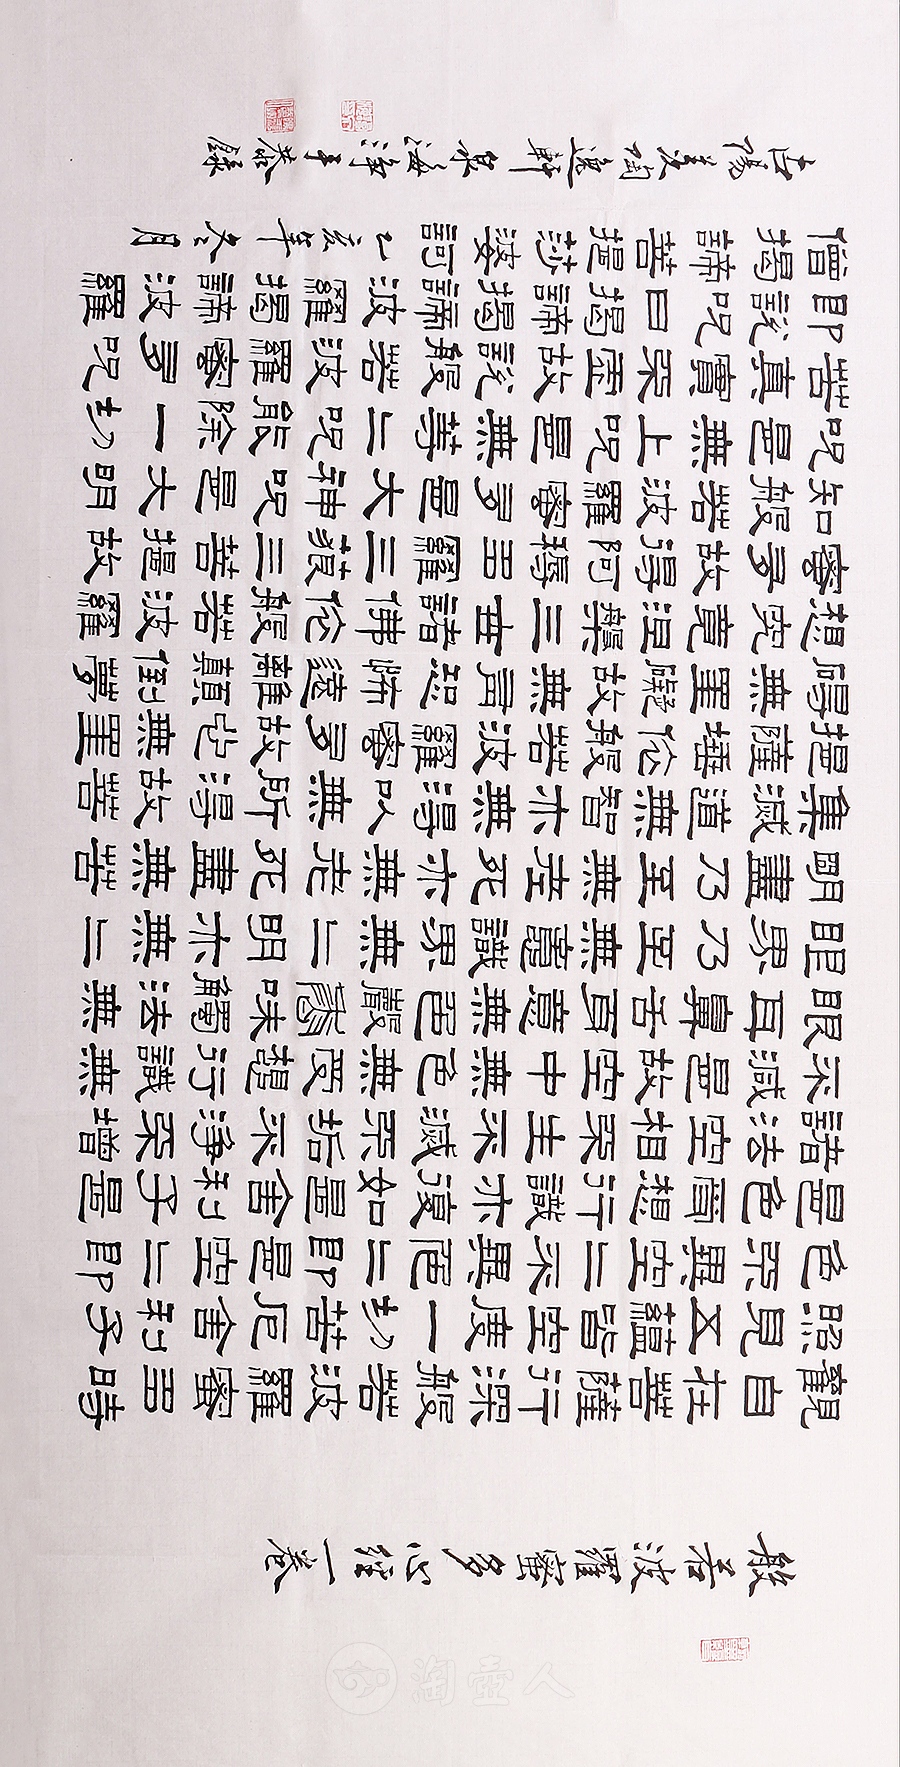 般若波羅蜜多心經一卷
觀自在菩薩行深般若波羅蜜多時
照見五蘊皆空度一切苦厄舍利子
色不異空二不異色二即是空二即
是色受想行識亦復如是舍利子是
諸法空相不生不滅不垢不淨不增
不減是故空中無色無受想行識無
眼耳鼻舌身意無色聲香味觸法無
眼界乃至無意識界無二明亦無二
明盡乃至無老死亦無老死盡無苦
集滅道無智亦無得以無所得故菩
提薩埵依般若波羅蜜多故心無罣
礙無罣礙故無有恐怖遠離顛倒夢
想究竟涅槃三世諸佛依般若波羅
蜜多故得阿耨多羅三藐三菩提故
知般若波羅蜜多是大神咒是大明
咒是無上咒是無等二咒能除一切
苦真實不虛故說般若波羅蜜多咒
即說咒曰揭諦揭諦波羅揭諦波羅
僧揭諦菩提莎婆訶 乙亥年冬月
古陽羨陶逸軒泉海淨手恭錄
淘壺人